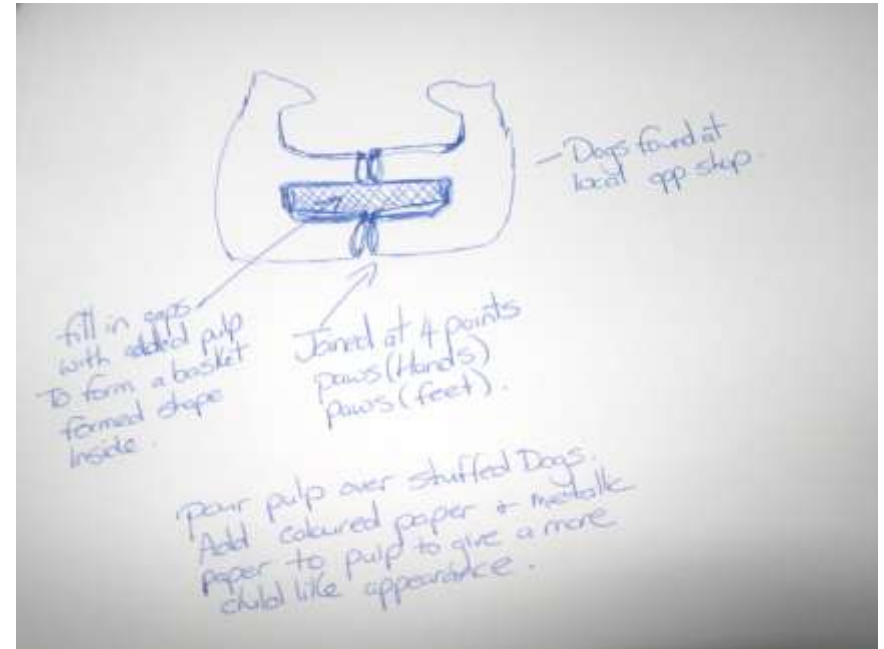 - Dogs found at
local opp shop.
fill in gaps
with added pulp
To form a basket
formed shape
Inside.
Joined at 4 points
paws (Hands)
paws (feet).
Pour pulp over stuffed Dogs.
Add coloured paper + metallic
paper to pulp to give a more
child like appearance.